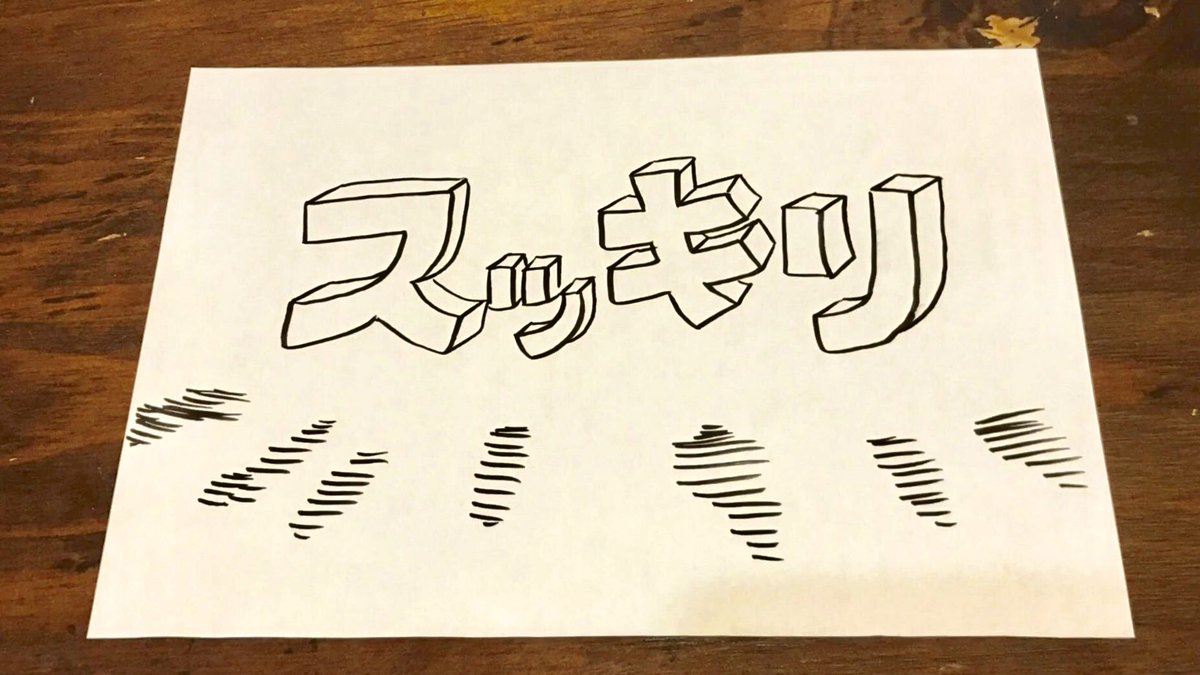 スッキリ